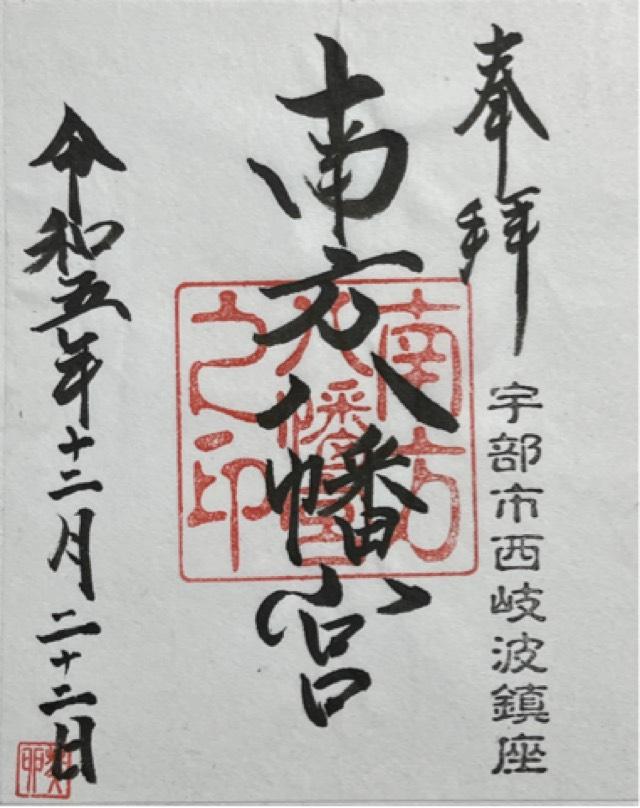 奉拝
宇部市西岐波鎮座
南方八幡宮
南方
八幡宮
之印
令和五年十二月二十二日